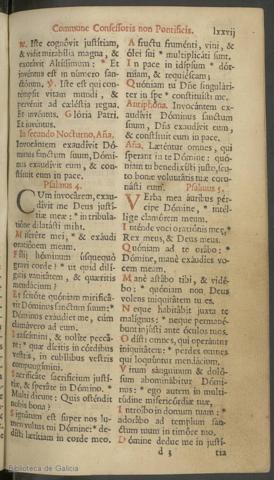 Commune Confessoris non Pontificis. lxxvij
℟. Iste cognóvit justítiam,
& vidit mirabília magna, &
exorávit Altíssimum: * Et
invéntus est in número san-
ctórum. ℣. Iste est qui con-
témpsit vitam mundi, &
pervénit ad cæléstia regna.
Et invéntus. Glória Patri.
Et invéntus.
In secundo Nocturno, Aña.
Invocántem exaudívit Dó-
minus sanctum suum, Dómi-
nus exaudívit eum, & con-
stítuit eum in pace.
Psalmus 4.
CUm invocárem, exau-
dívit me Deus justí-
tiæ meæ: * in tribula-
tióne dilatásti mihi.
Miserére mei, * & exáudi
oratiónem meam.
Fílii hóminum úsquequò
gravi corde? * ut quid dilí-
gitis vanitátem, & quæritis
mendácium?
Et scitóte quóniam mirificá-
vit Dóminus sanctum suum: *
Dóminus exáudiet me, cùm
clamávero ad eum.
Irascímini, & nolíte peccá-
re: * quæ dícitis in córdibus
vestris, in cubílibus vestris
compungímini.
Sacrificáte sacrifícium justí-
tiæ, & speráte in Dómino. *
Multi dicunt: Quis osténdit
nobis bona?
Signátum est super nos lu-
men vultus tui Dómine: * de-
dísti lætítiam in corde meo.
A fructu fruménti, vini, &
ólei sui * multiplicáti sunt.
In pace in idípsum * dór-
miam, & requiéscam;
Quóniam tu Dñe singulári-
ter in spe * constituísti me.
Antiphona. Invocántem ex-
audívit Dóminus sanctum
suum, Dñs exaudívit eum,
& constítuit eum in pace.
Aña. Læténtur omnes, qui
sperant in te Dómine: quó-
niam tu benedixísti justo, scu-
to bonæ voluntátis tuæ coro-
násti eum. Psalmus 5.
VErba mea áuribus pér-
cipe Dómine, * intél-
lige clamórem meum.
Inténde voci oratiónis meæ, *
Rex meus, & Deus meus.
Quóniam ad te orábo: *
Dómine, manè exáudies vo-
cem meam.
Manè astábo tibi, & vidé-
bo: * quóniam non Deus
volens iniquitátem tu es.
Neque habitábit juxta te
malígnus: * neque permané-
bunt injústi ante óculos tuos.
Odísti omnes, qui operántur
iniquitátem: * perdes omnes
qui loquúntur mendácium.
Virum sánguinum & doló-
sum abominábitur Dómi-
nus: * ego autem in multi-
túdine misericórdiæ tuæ,
Introíbo in domum tuam: *
adorábo ad templum san-
ctum tuum in timóre tuo.
Dómine deduc me in justí-
d 3 tia
Biblioteca de Galicia